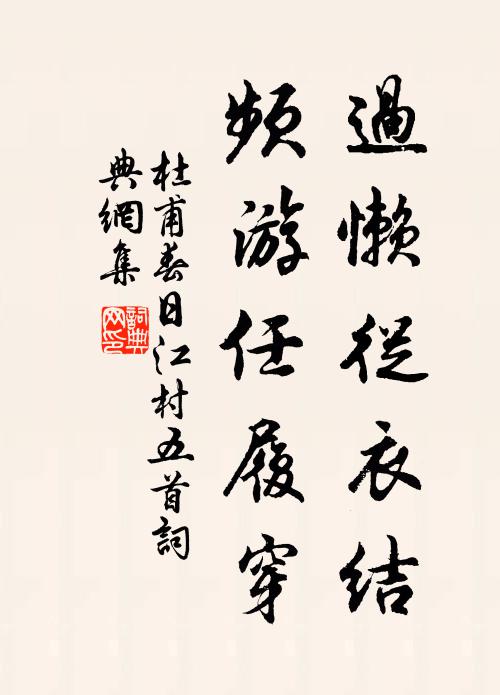 過懶從衣結
頻游任履穿
杜甫春日江村五首詞
典網集
詞典
网印